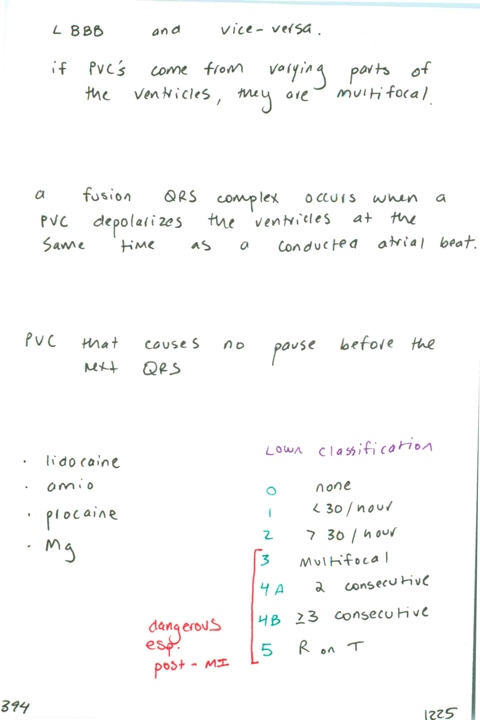 LBBB and vice-versa.
if PVC's come from varying parts of
the ventricles, they are multifocal.
a fusion QRS complex occurs when a
PVC depolarizes the ventricles at the
same time as a conducted atrial beat.
PVC that causes no pause before the
next QRS
· lidocaine
· amio
· procaine
· Mg
Lown classification
0 none
1 <30/hour
2 >30/hour
3 multifocal
4A 2 consecutive
4B ≥3 consecutive
5 R on T
dangerous
esp.
post-MI
394
1225